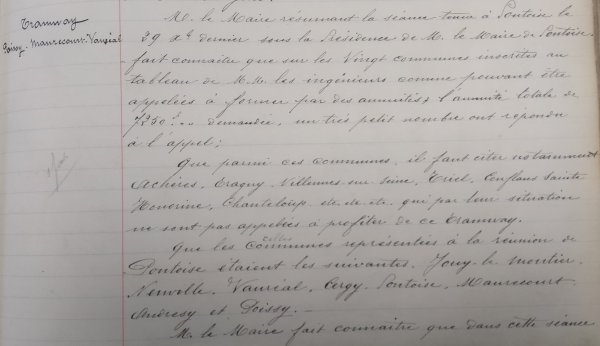 Tramway
Poissy-Maurecourt-Vauréal
M. le Maire résumant la séance tenue à Pontoise le
29 Xbre dernier sous la Présidence de M. le Maire de Pontoise,
fait connaître que sur les Vingt communes inscrites au
tableau de M.M. les ingénieurs comme pouvant être
appelées à former par des annuités, l'annuité totale de
7230f.. demandée, un très petit nombre ont répondu
à l'appel;
Que parmi ces communes, il faut citer notamment
Achères, Eragny Villennes sur Seine, Triel, Conflans Sainte
Honorine, Chanteloup etc. etc. etc. qui par leur situation
ne sont pas appelées à profiter de ce Tramway.
celles
Que les communes représentées à la réunion de
Pontoise étaient les suivantes. Jouy-le-moutier,
Neuville, Vauréal, Cergy, Pontoise, Maurecourt,
Andresy et Poissy. —
M. le Maire fait connaître que dans cette séance